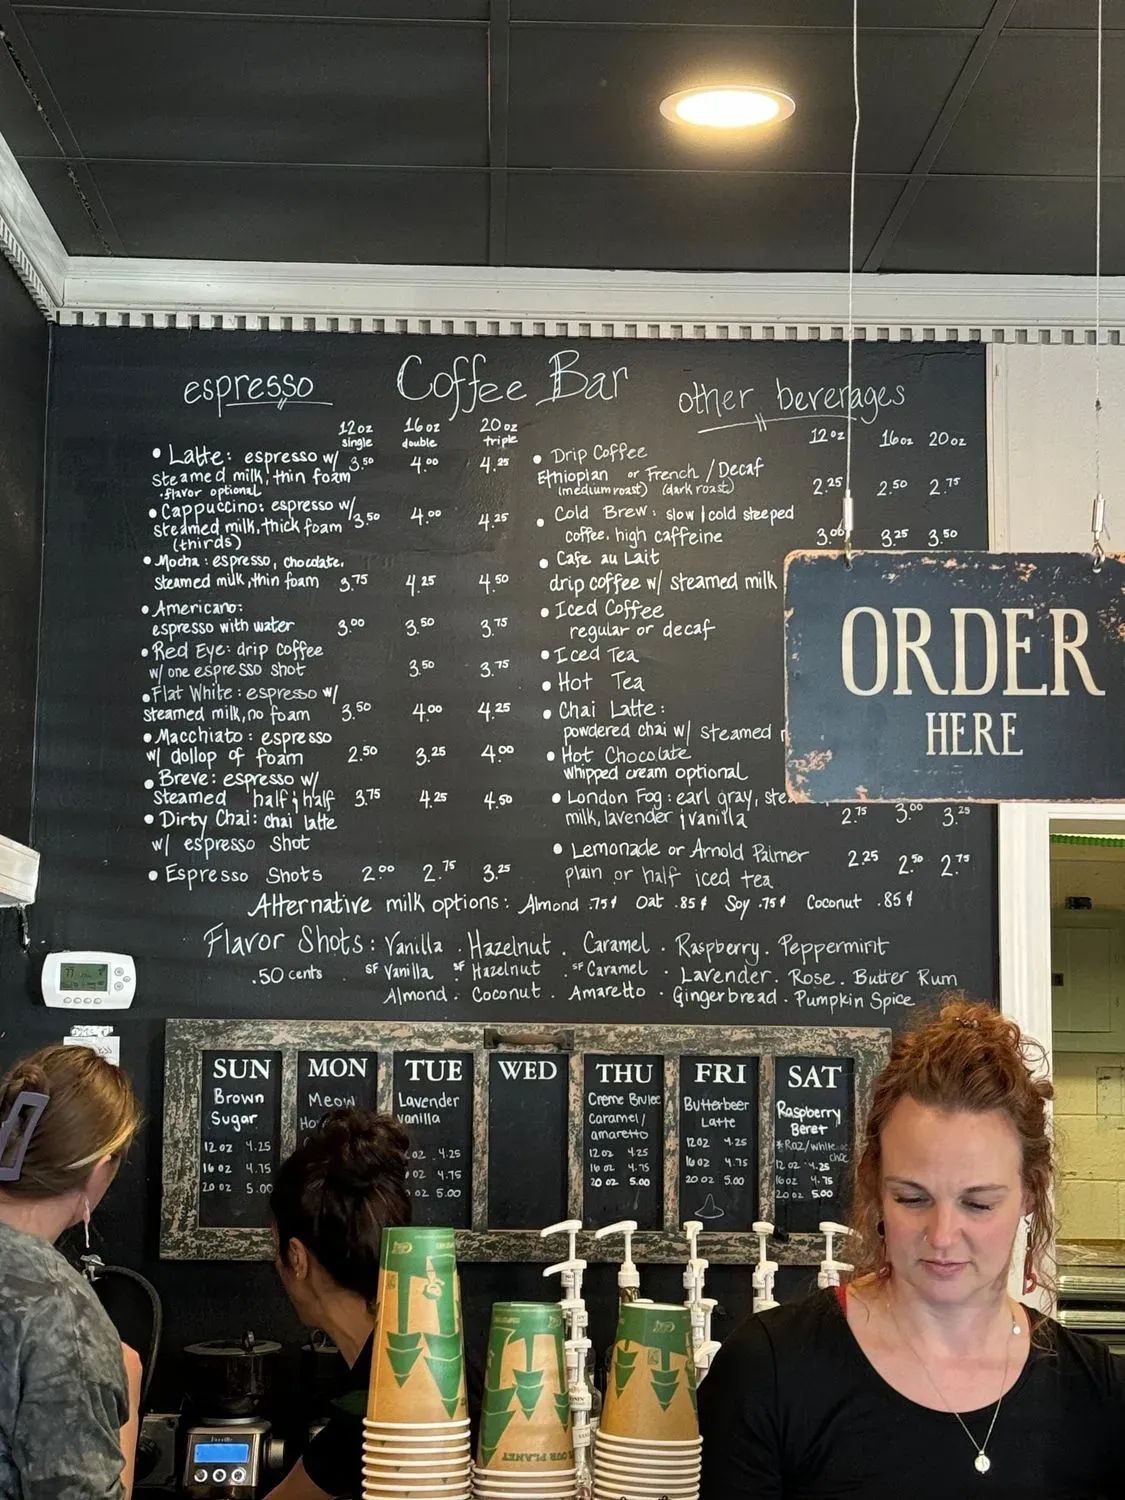 Coffee Bar
espresso
12oz 16oz 20oz
single double triple
• Latte: espresso w/ 3.50 4.00 4.25
steamed milk, thin foam
· flavor optional
• Cappuccino: espresso w/
steamed milk, thick foam 3.50 4.00 4.25
(thirds)
• Mocha: espresso, chocolate,
steamed milk, thin foam 3.75 4.25 4.50
• Americano:
espresso with water 3.00 3.50 3.75
• Red Eye: drip coffee
w/ one espresso shot 3.50 3.75
• Flat White: espresso w/
steamed milk, no foam 3.50 4.00 4.25
• Macchiato: espresso
w/ dollop of foam 2.50 3.25 4.00
• Breve: espresso w/
steamed half & half 3.75 4.25 4.50
• Dirty Chai: chai latte
w/ espresso shot
• Espresso Shots 2.00 2.75 3.25
other beverages
12oz 16oz 20oz
• Drip Coffee
Ethiopian or French / Decaf
(medium roast) (dark roast) 2.25 2.50 2.75
• Cold Brew: slow / cold steeped
coffee, high caffeine 3.00 3.25 3.50
• Cafe au Lait
drip coffee w/ steamed milk
• Iced Coffee
regular or decaf
• Iced Tea
• Hot Tea
• Chai Latte:
powdered chai w/ steamed
• Hot Chocolate
whipped cream optional
• London Fog: earl gray,
milk, lavender & vanilla 2.75 3.00 3.25
• Lemonade or Arnold Palmer
plain or half iced tea 2.25 2.50 2.75
Alternative milk options: Almond .75¢ Oat .85¢ Soy .75¢ Coconut .85¢
Flavor Shots: Vanilla . Hazelnut . Caramel . Raspberry . Peppermint
.50 cents SF Vanilla SF Hazelnut . SF Caramel . Lavender . Rose . Butter Rum
Almond . Coconut . Amaretto . Gingerbread . Pumpkin Spice
ORDER
HERE
SUN
Brown
Sugar
12 oz 4.25
16 oz 4.75
20 oz 5.00
MON
Meow
TUE
Lavender
vanilla
oz 4.25
oz 4.75
oz 5.00
WED
THU
Creme Brulee
caramel/
amaretto
12 oz 4.25
16 oz 4.75
20 oz 5.00
FRI
Butterbeer
Latte
12oz 4.25
16 oz 4.75
20 oz 5.00
SAT
Raspberry
Beret
* Raz/white
choc
12 oz 4.25
16oz 4.75
20oz 5.00